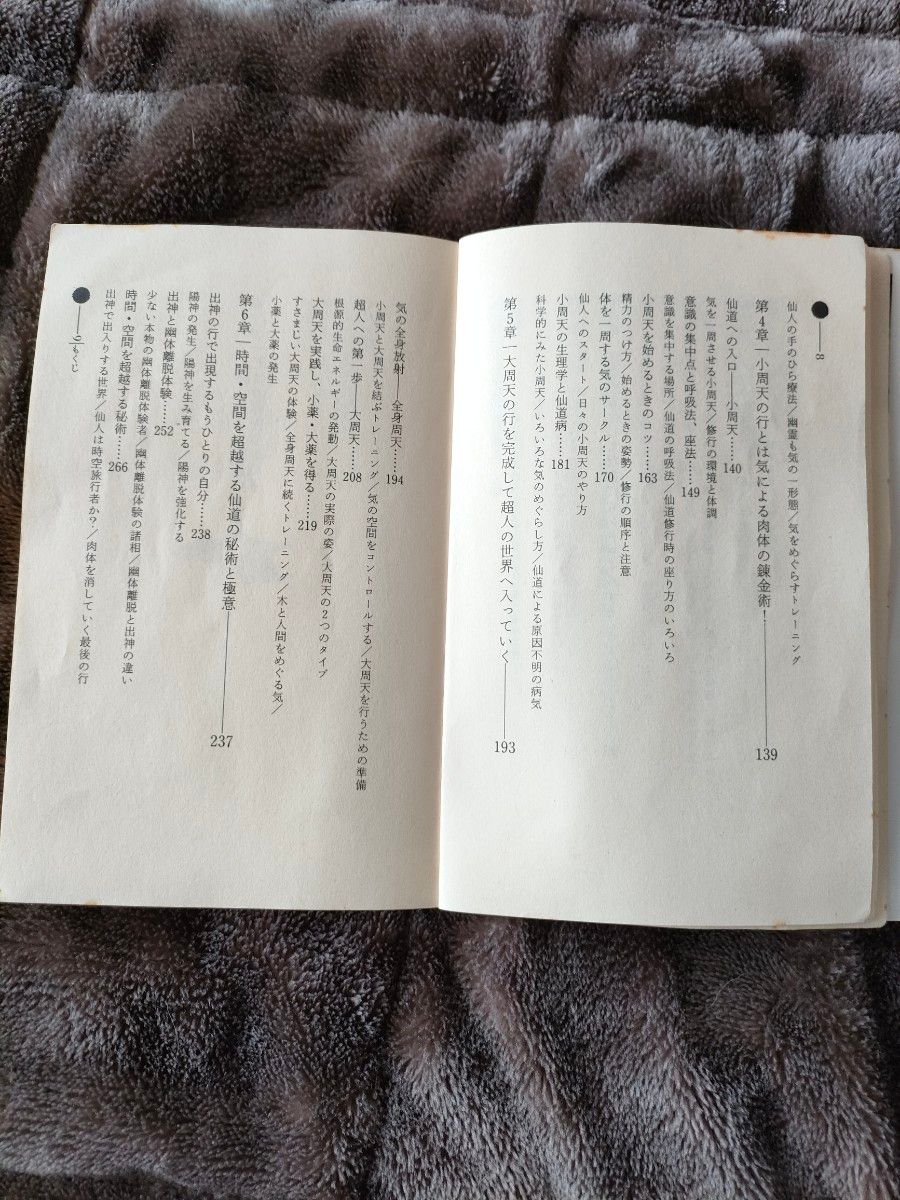 8
仙人の手のひら療法／幽霊も気の一形態／気をめぐらすトレーニング
第4章―小周天の行とは気による肉体の錬金術！――139
仙道への入口――小周天……140
気を一周させる小周天／修行の環境と体調
意識の集中点と呼吸法、座法……149
意識を集中する場所／仙道の呼吸法／仙道修行時の座り方のいろいろ
小周天を始めるときのコツ……163
精力のつけ方／始めるときの姿勢／修行の順序と注意
体を一周する気のサークル……170
仙人へのスタート／日々の小周天のやり方
小周天の生理学と仙道病……181
科学的にみた小周天／いろいろな気のめぐらし方／仙道による原因不明の病気
第5章―大周天の行を完成して超人の世界へ入っていく――193
気の全身放射――全身周天……194
小周天と大周天を結ぶトレーニング／気の空間をコントロールする／大周天を行うための準備
超人への第一歩――大周天……208
根源的生命エネルギーの発動／大周天の実際の姿／大周天の2つのタイプ
大周天を実践し、小薬・大薬を得る……219
すさまじい大周天の体験／全身周天に続くトレーニング／木と人間をめぐる気／
小薬と大薬の発生
第6章―時間・空間を超越する仙道の秘術と極意――237
出神の行で出現するもうひとりの自分……238
陽神の発生／陽神を生み育てる／陽神を強化する
出神と幽体離脱体験……252
少ない本物の幽体離脱体験者／幽体離脱体験の諸相／幽体離脱と出神の違い
時間・空間を超越する秘術……266
出神で出入りする世界／仙人は時空旅行者か？／肉体を消していく最後の行
9／もくじ